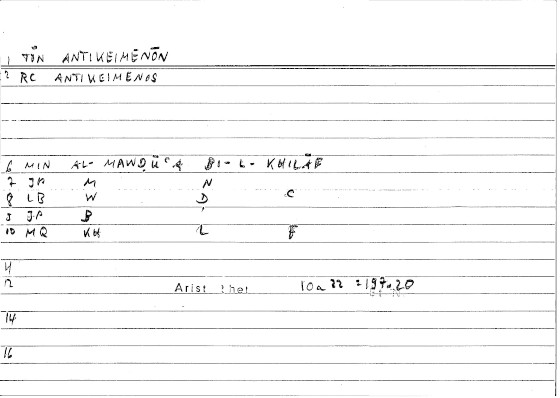 1 TŌN ANTIKEIMENŌN
2 RC ANTIKEIMENOS
6 MIN AL- MAWḌŪʿA BI- L- KHILĀF
7 JP M N
8 LB W Ḍ C
9 JP B
10 MQ KH L F
11
12 Arist rhet 10a 22 = 197.20
14
16